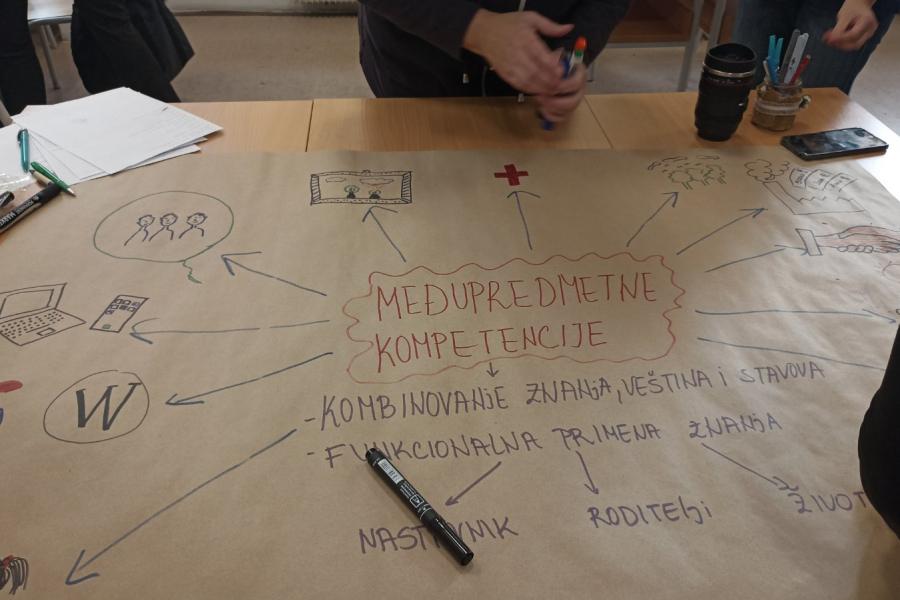 MEĐUPREDMETNE
KOMPETENCIJE
-KOMBINOVANjE ZNANjA, VEŠTINA i STAVOVA
-FUNKCIONALNA PRIMENA ZNANjA
NASTAVNIK
RODITELjI
ŽIVOT
W